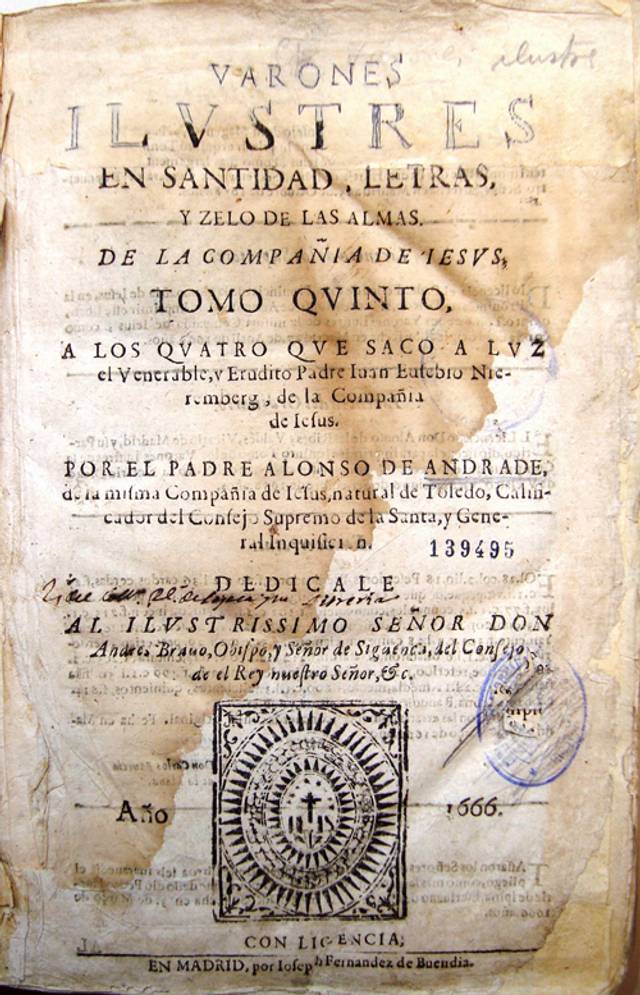 ilustre
VARONES
ILVSTRES
EN SANTIDAD, LETRAS,
Y ZELO DE LAS ALMAS.
DE LA COMPAÑIA DE IESVS,
TOMO QVINTO,
A LOS QVATRO QVE SACO A LVZ
el Venerable, y Erudito Padre Iuan Eusebio Nie-
remberg, de la Compañia
de Iesus.
POR EL PADRE ALONSO DE ANDRADE,
de la misma Compañia de Iesus, natural de Toledo, Califi-
cador del Consejo Supremo de la Santa, y Gene-
ral Inquisicion.
139495
DEDICALE
AL ILVSTRISSIMO SEÑOR DON
Andres Brauo, Obispo, y Señor de Siguença, del Consejo
de el Rey nuestro Señor, &c.
IHS
Año 1666.
CON LICENCIA,
EN MADRID, por Ioseph Fernandez de Buendia.